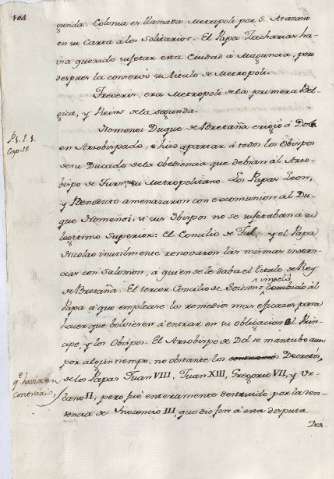 gunda. Colonia es llamada Metropole por S. Atanasio
en su Carta á los Solitarios. El Papa Zacharias ha-
via querido sujetar esta Ciudad á Maguncia, pero
despues la conservó su titulo de Metropole.
Treveris era Metropole de la primera Bel-
gica, y Reims de la segunda.
P. 1. 5.
Cap. 11
Nomenoi Duque de Bretaña erigió á Dol
en Arzobispado, é hizo apartar á todos los Obispos
de su Ducado de la obediencia que debian al Arzo-
bispo de Turs, su Metropolitano. Los Papas Leon,
y Benedicto amenazaron con excomunion al Du-
que Nomenoi, si sus Obispos no se sujetaban á su
legitimo Superior. El Concilio de Tul, y el Papa
Nicolao inutilmente renovaron las mismas instan-
cias con Salomon, á quien se le daba el titulo de Rey
de Bretaña. El tercer Concilio de Soissons
Papa á que emplease los remedios mas eficaces para
hacer que bolviesen á entrar en su obligacion el Prin-
cipe, y los Obispos. El Arzobispo de Dol se mantubo aun
por algun tiempo, no obstante los Decretos,
de los Papas Juan VIII, Juan XIII, Gregorio VII, y Ur-
bano II, pero fué enteramente destruido por la sen-
tencia de Inocencio III que dio fin á esta disputa